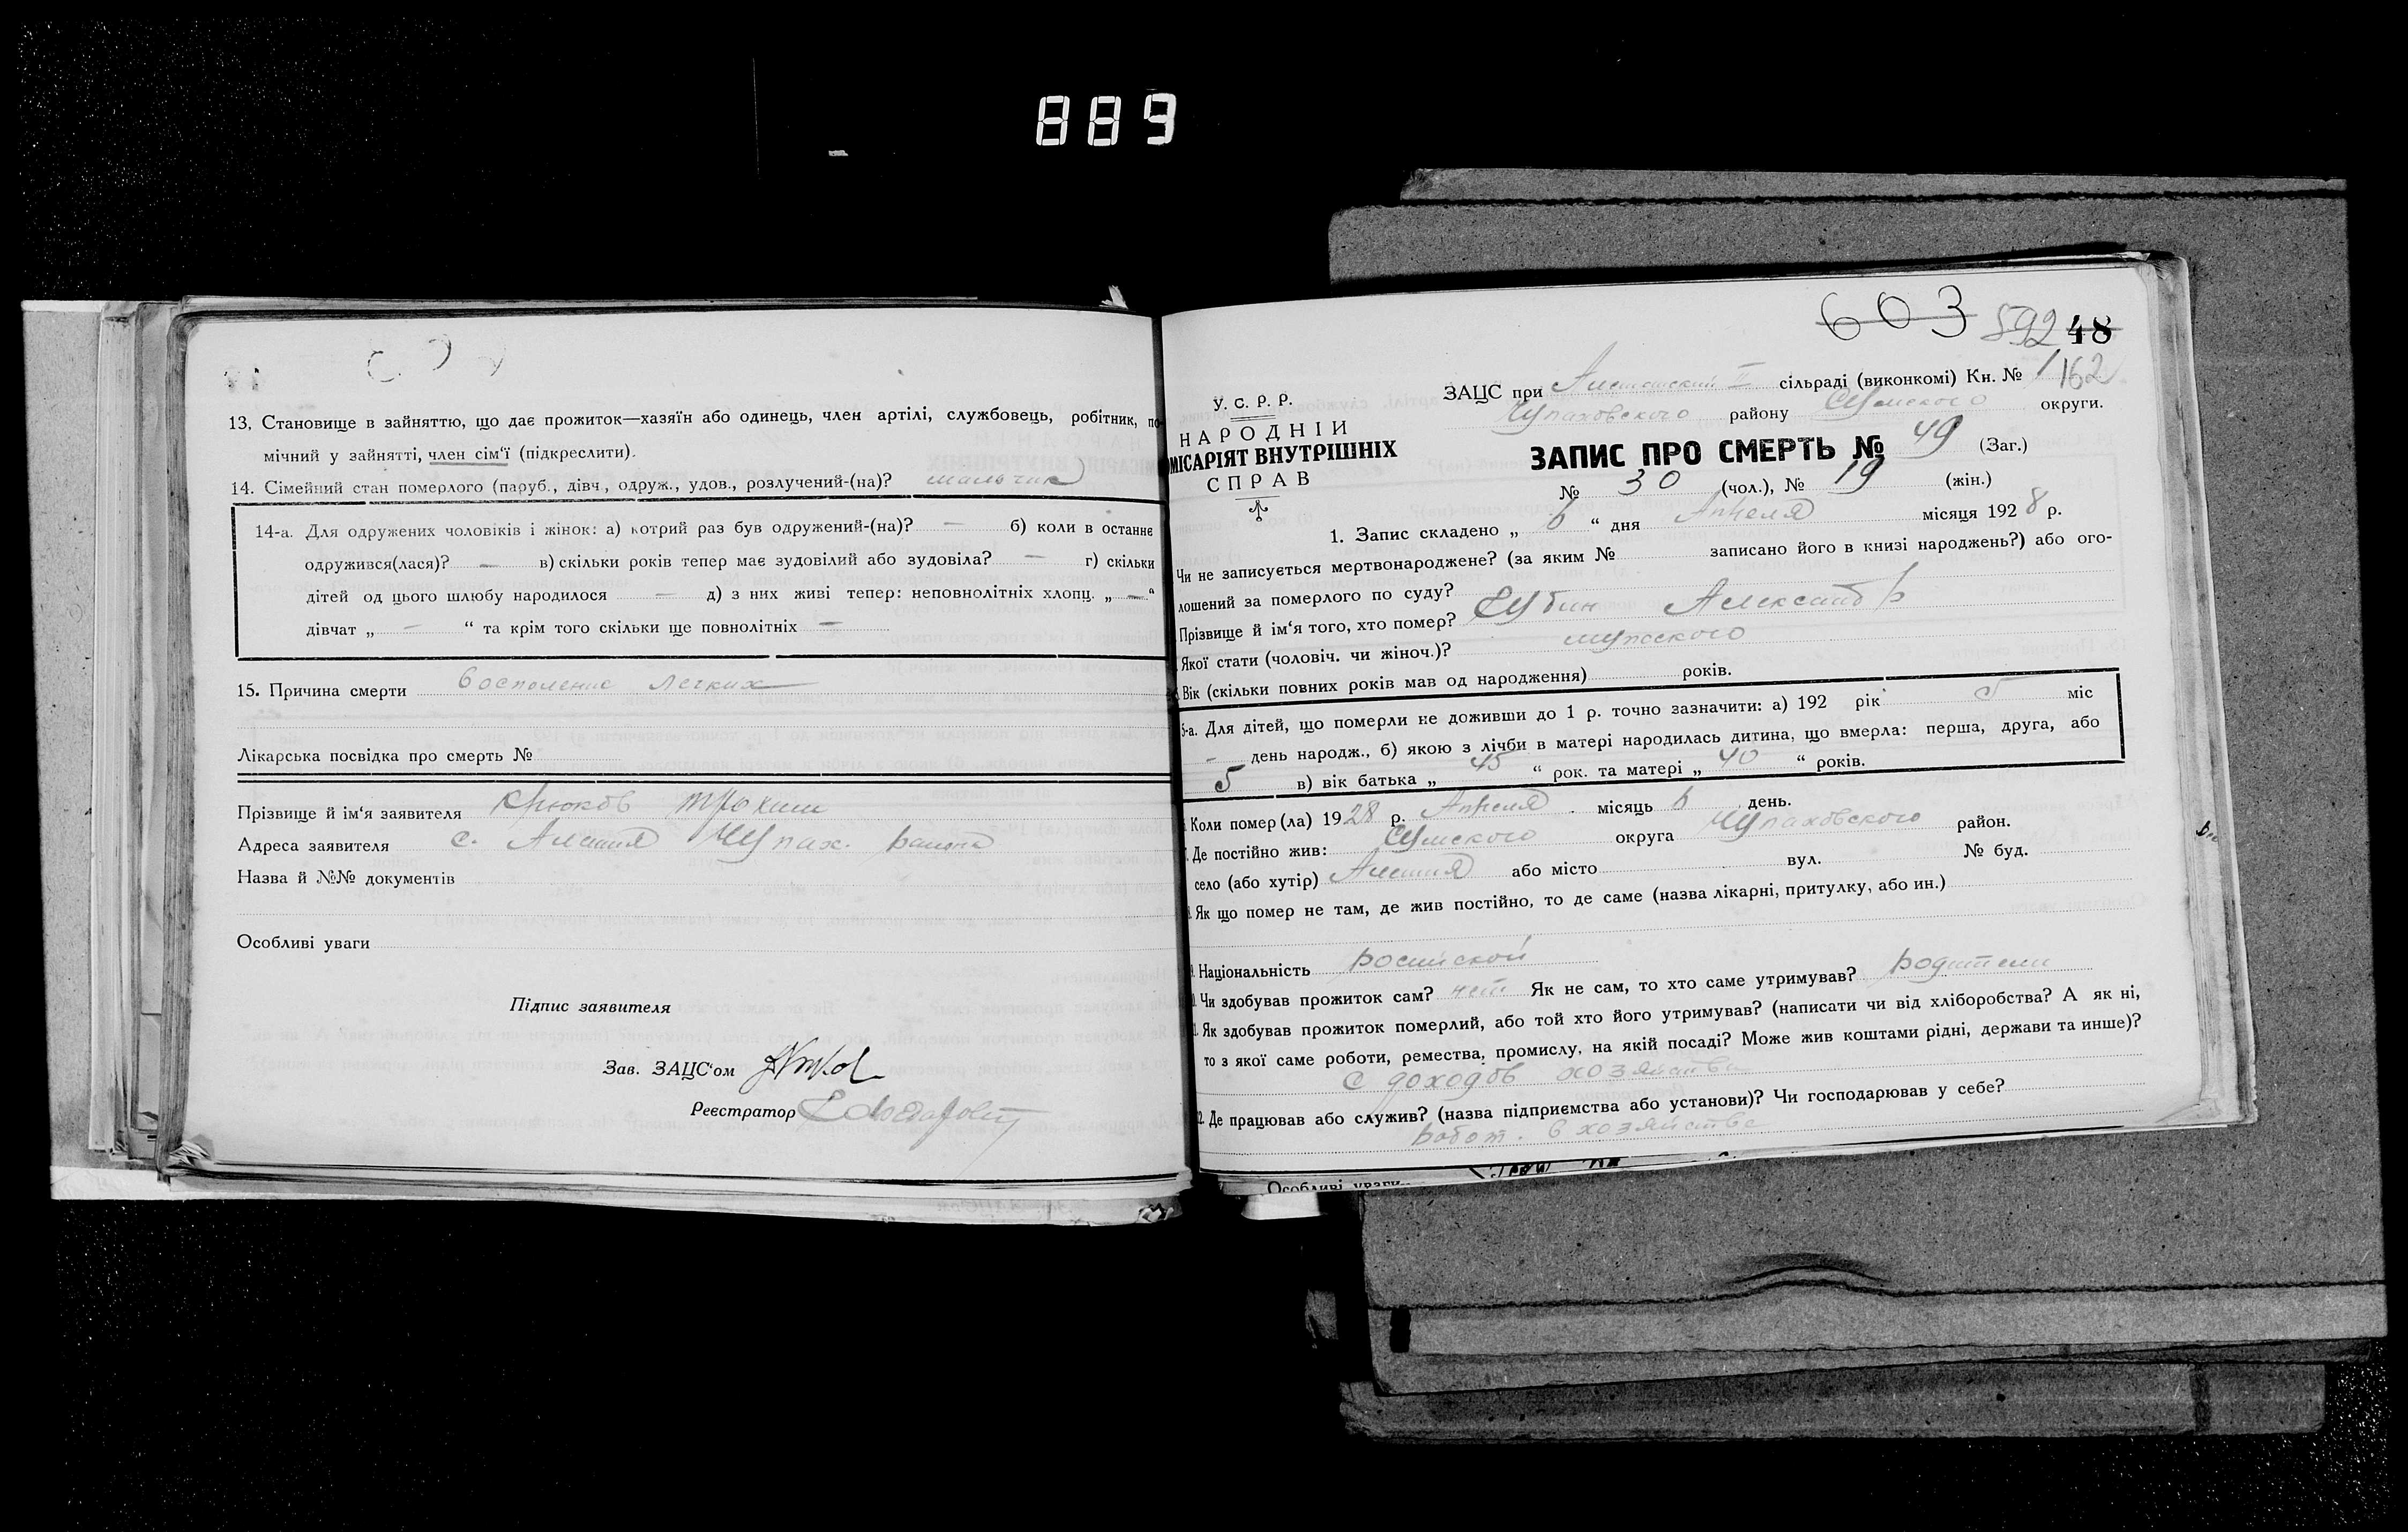 889
13. Становище в зайняттю, що дає прожиток—хазяїн або одинець, член артілі, службовець, робітник, по
мічний у зайнятті, член сім'ї (підкреслити).
14. Сімейний стан померлого (паруб., дівч., одруж., удов., розлучений-(на)? мальчик
14-а. Для одружених чоловіків і жінок: а) котрий раз був одружений-(на)? — б) коли в останнє
одружився(лася)? — в) скільки років тепер має зудовілий або зудовіла? — г) скільки
дітей од цього шлюбу народилося — д) з них живі тепер: неповнолітніх хлопц. „ — “
дівчат „ — “ та крім того скільки ще повнолітніх —
15. Причина смерти воспаление легких
Лікарська посвідка про смерть №
Прізвище й ім'я заявителя Крюков Трохим
Адреса заявителя с. Алешня Чупах. района
Назва й №№ документів
Особливі уваги
Підпис заявителя
Зав. ЗАЦС'ом
Реєстратор
603 592 48
162
У. С. Р. Р.
НАРОДНІЙ
МІСАРІЯТ ВНУТРІШНІХ
СПРАВ
ЗАЦС при Алешанский II сільраді (виконкомі) Кн. № 1
Чупаховского району Сумского округи.
ЗАПИС ПРО СМЕРТЬ № 49 (Заг.)
№ 30 (чол.), № 19 (жін.)
1. Запис складено „ 6 “ дня Апреля місяця 1928 р.
Чи не записується мертвонароджене? (за яким № записано його в книзі народжень?) або ого-
лошений за померлого по суду?
Прізвище й ім'я того, хто помер? Губин Александр
Якої стати (чоловіч. чи жіноч.)? мужского
Вік (скільки повних років мав од народження) років.
5-а. Для дітей, що померли не доживши до 1 р. точно зазначити: а) 192 рік 5 міс
- день народж., б) якою з лічби в матері народилась дитина, що вмерла: перша, друга, або
5 в) вік батька „ 45 “ рок. та матері „ 40 “ років.
Коли помер (ла) 1928 р. Апреля місяць 6 день.
Де постійно жив: Сумского округа Чупаховского район.
село (або хутір) Алешня або місто вул. № буд.
Як що помер не там, де жив постійно, то де саме (назва лікарні, притулку, або ин.)
Національність росийской
Чи здобував прожиток сам? нет Як не сам, то хто саме утримував? родители
1. Як здобував прожиток померлий, або той хто його утримував? (написати чи від хліборобства? А як ні,
то з якої саме роботи, ремества, промислу, на якій посаді? Може жив коштами рідні, держави та инше)?
С доходов хозяйства
2. Де працював або служив? (назва підприємства або установи)? Чи господарював у себе?
работ. в хозяйстве
Особливі уваги